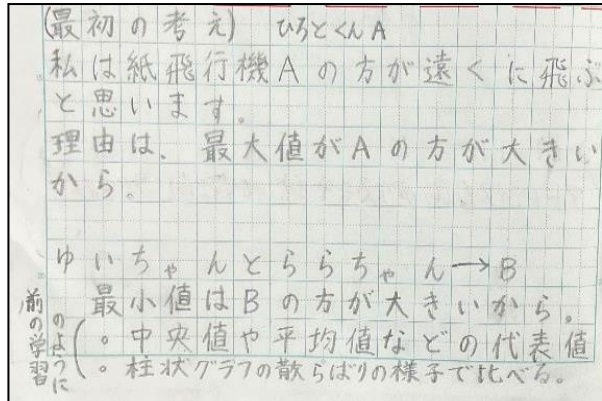 (最初の考え) ひろとくんA
私は紙飛行機Aの方が遠くに飛ぶ
と思います。
理由は、最大値がAの方が大きい
から。
ゆいちゃんとららちゃん→B
最小値はBの方が大きいから。
前の学習のように
(。中央値や平均値などの代表値
。柱状グラフの散らばりの様子で比べる。